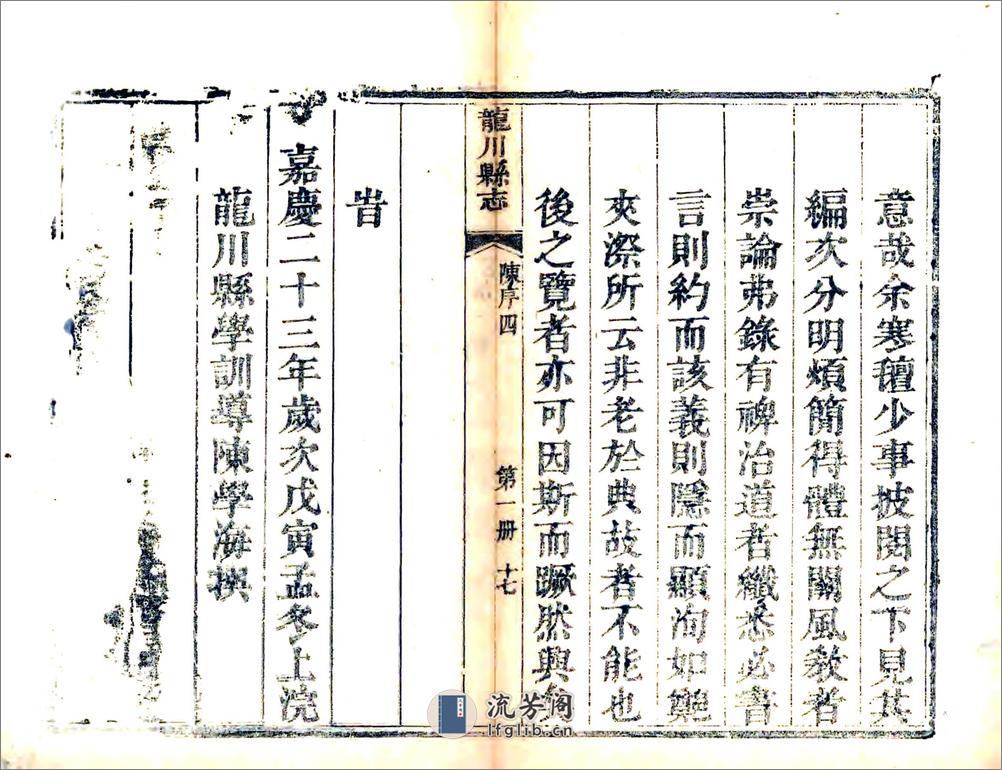 意哉余寒氊少事披閱之下見其
編次分明煩簡得體無關風教者
崇論弗錄有裨治道者纖悉必書
言則約而該義則隱而顯洵如鄭
夾漈所云非老於典故者不能也
後之覽者亦可因斯而蹶然興矣
龍川縣志 陳序四 第一册 十七
旹
嘉慶二十三年歲次戊寅孟冬上浣
龍川縣學訓導陳學海撰
流芳阁
lfglib.cn